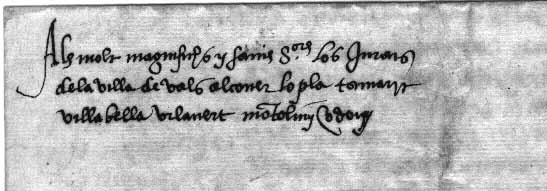 Als molt magnifichs y savis S.ors los Jurats
de la villa de vals alcover lo pla tamarit
villa bella vilavert montoliu